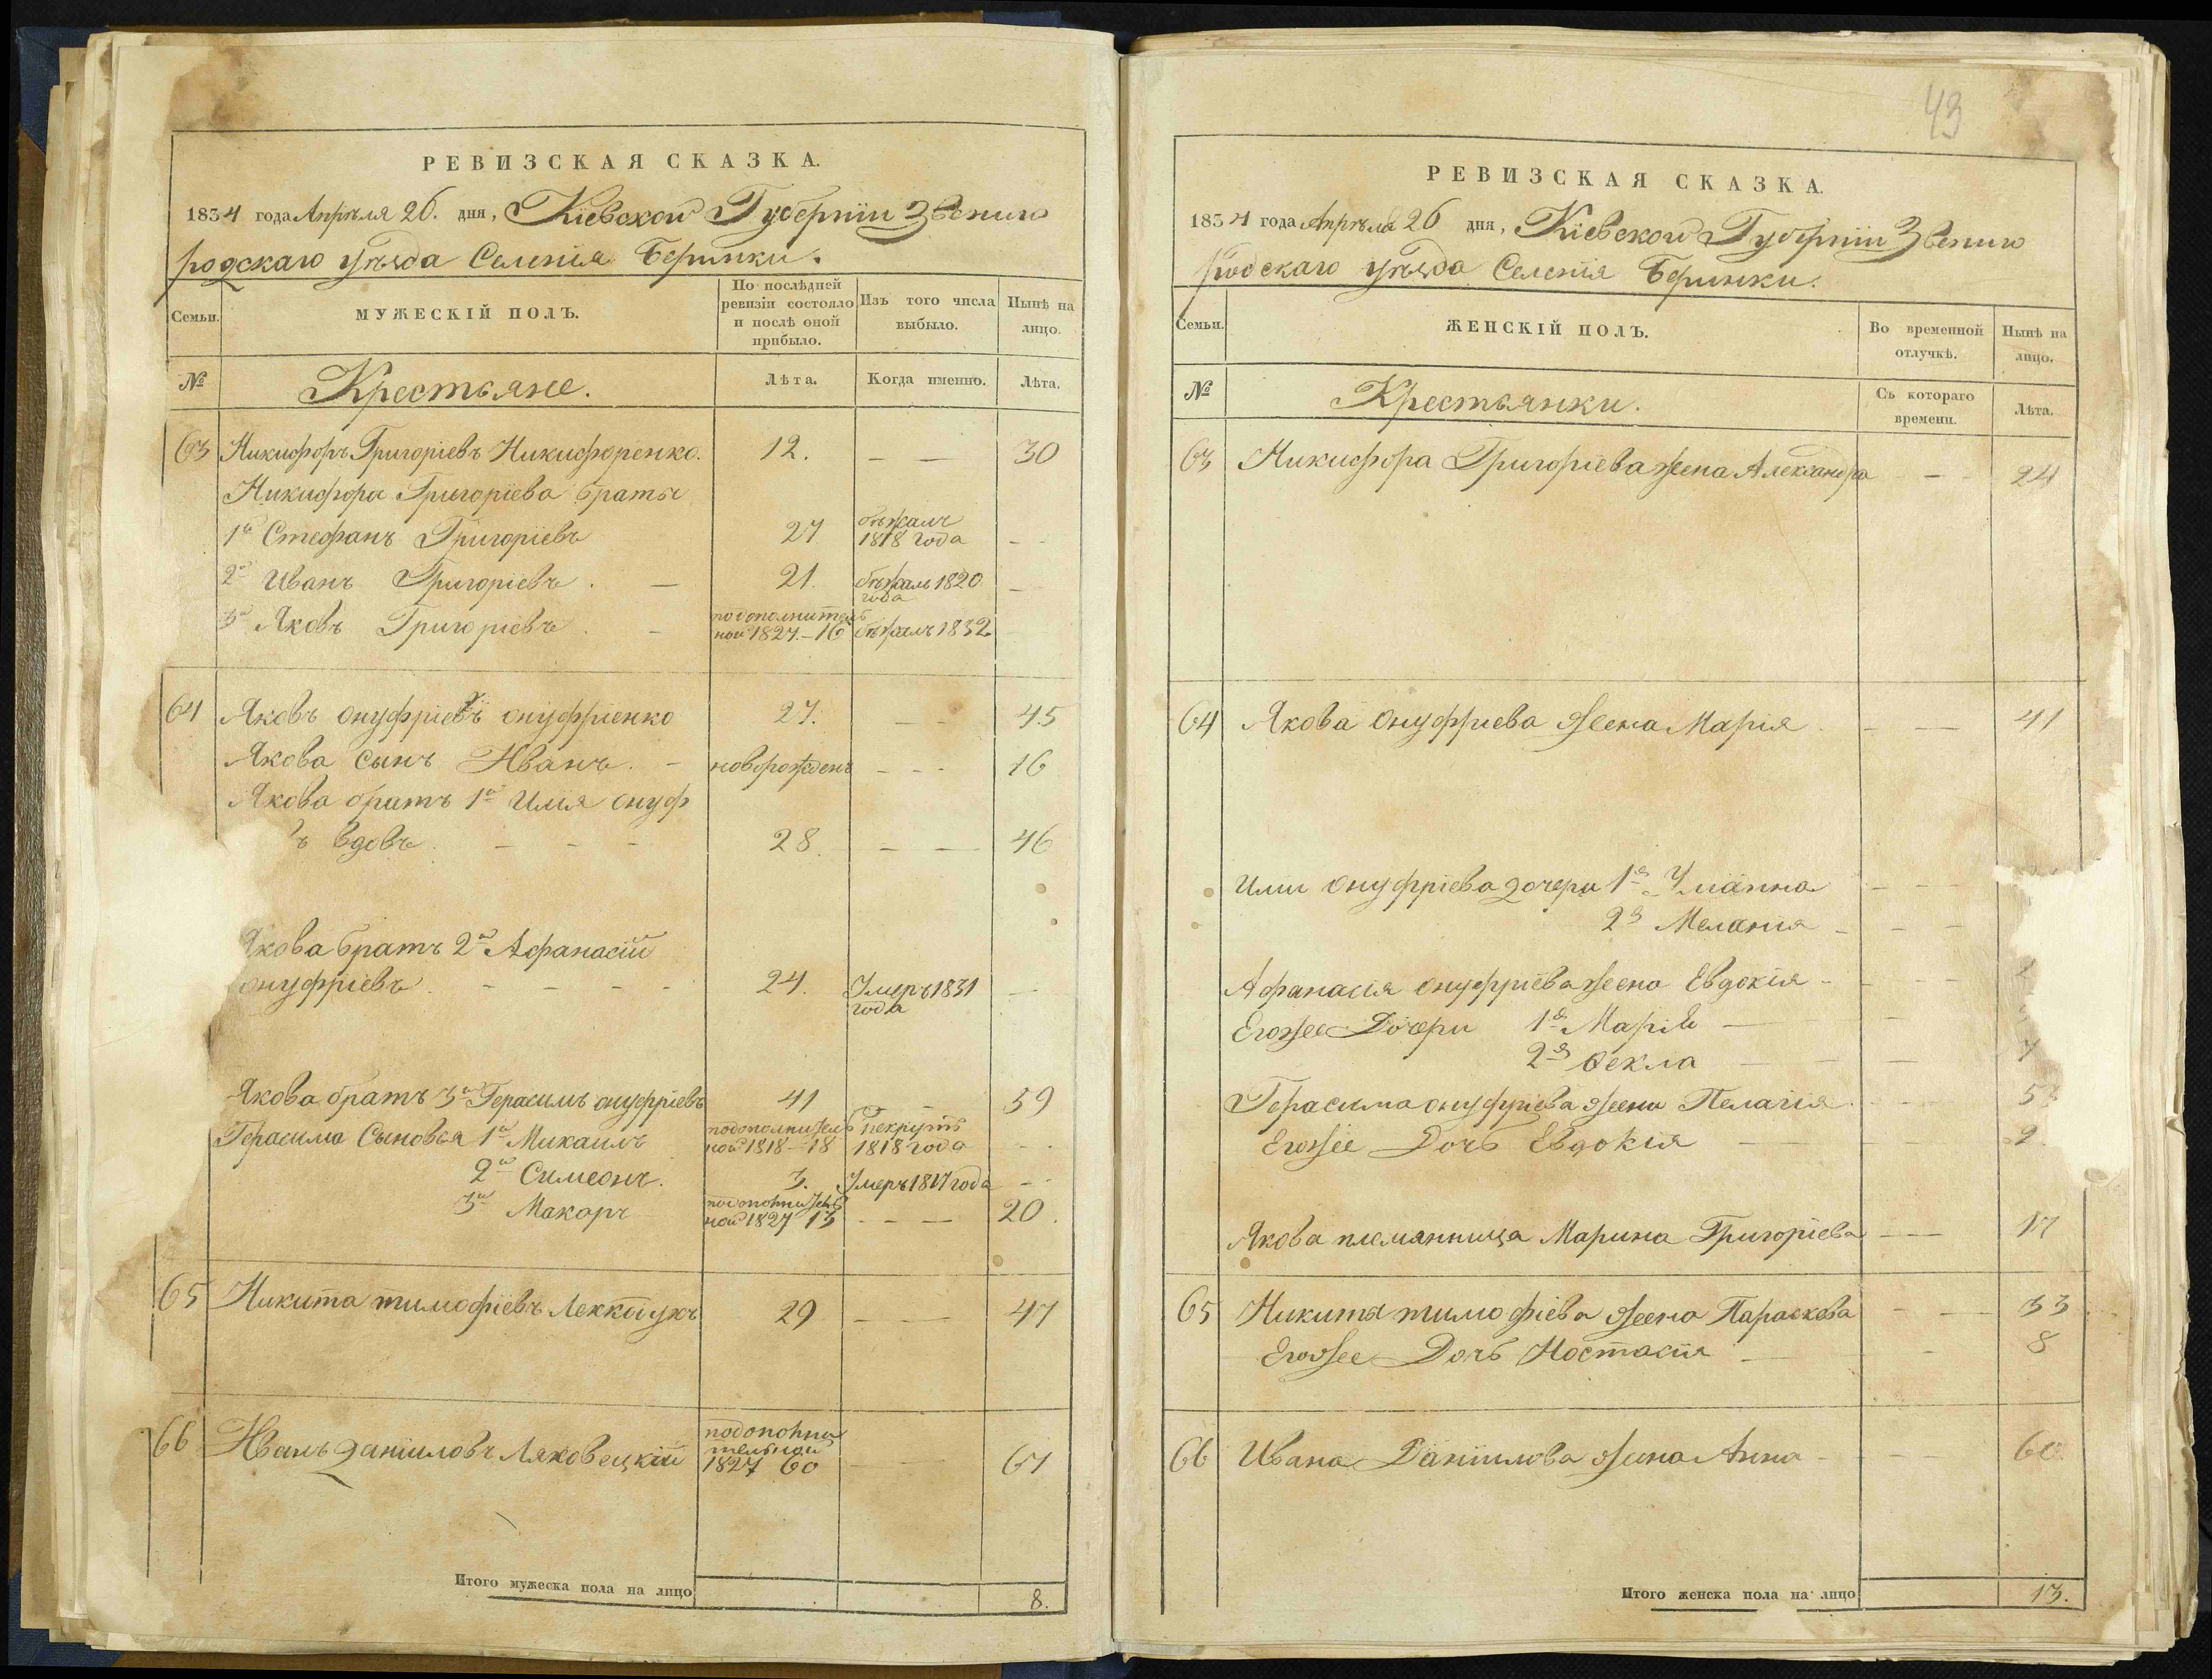 РЕВИЗСКАЯ СКАЗКА.
1834 года Апрѣля 26. дня, Кіевской Губерніи Звениго
родскаго уѣзда Селенія Беринки.
Семьи.
МУЖЕСКІЙ ПОЛЪ.
По послѣдней
ревизіи состояло
и послѣ оной
прибыло.
Изъ того числа
выбыло.
Нынѣ на
лицо.
№
Крестьяне.
Лѣта.
Когда именно.
Лѣта.
63 Никифоръ Григоріевъ Никифоренко. 12. — — 30
Никифора Григоріева браты
1й Стефанъ Григоріевъ 27 бѣжалъ
1818 года - -
2й Иванъ Григоріевъ . — 21. бѣжалъ 1820
года —
3й Яковъ Григоріевъ . - подополнитель
ной 1827.-16 бѣжалъ 1832
64 Яковъ Онуфріевъ Онуфріенко 27. — — 45
Якова сынъ Иванъ. - новорожденъ - - - 16
Якова братъ 1й Илія Онуф
ъ вдовъ. - - - 28. — — 46
Якова братъ 2й Афанасій
Онуфріевъ. - - - - 24. Умеръ 1831
года - -
Якова братъ 3й Герасимъ Онуфріевъ 41 59
Герасима Сыновья 1й Михаилъ подополнитель
ной 1818-18 Рекрутъ
1818 года - -
2й Симеонъ. 3. Умеръ 1817 года - -
3й Макаръ подополнитель
ной 1827 13 - - — 20.
65 Никита Тимофіевъ 29 — — 47
66 Иванъ Даніиловъ Ляховецкій подополни
тельной
1827 60 — — 67
Итого мужеска пола на лицо 8.
43
РЕВИЗСКАЯ СКАЗКА.
1834 года Апрѣля 26 дня, Кіевской Губерніи Звениго
родскаго уѣзда Селенія Беринки.
Семьи.
ЖЕНСКІЙ ПОЛЪ.
Во временной
отлучкѣ.
Нынѣ на
лицо.
№
Крестьянки.
Съ котораго
времени.
Лѣта.
63 Никифора Григоріева жена Александра - — - 24
64 Якова Онуфріева жена Марія . - — 41
Иліи Онуфріева дочери 1я Уліанна - - -
2я Меланія - - -
Афанасія Онуфріева жена Евдокія - - - -
Егоже Дочери 1я Марія — —
2я Фекла — — — 7
Герасима Онуфріева жена Пелагія . - - 5
Егоже Дочь Евдокія — — 9
Якова племянница Марина Григоріева — — 17
65 Никиты Тимофіева жена Параскева - — 33
Егоже Дочь Настасія — - 8
66 Ивана Даніилова жена Анна - - - 60.
Итого женска пола на лицо 13.